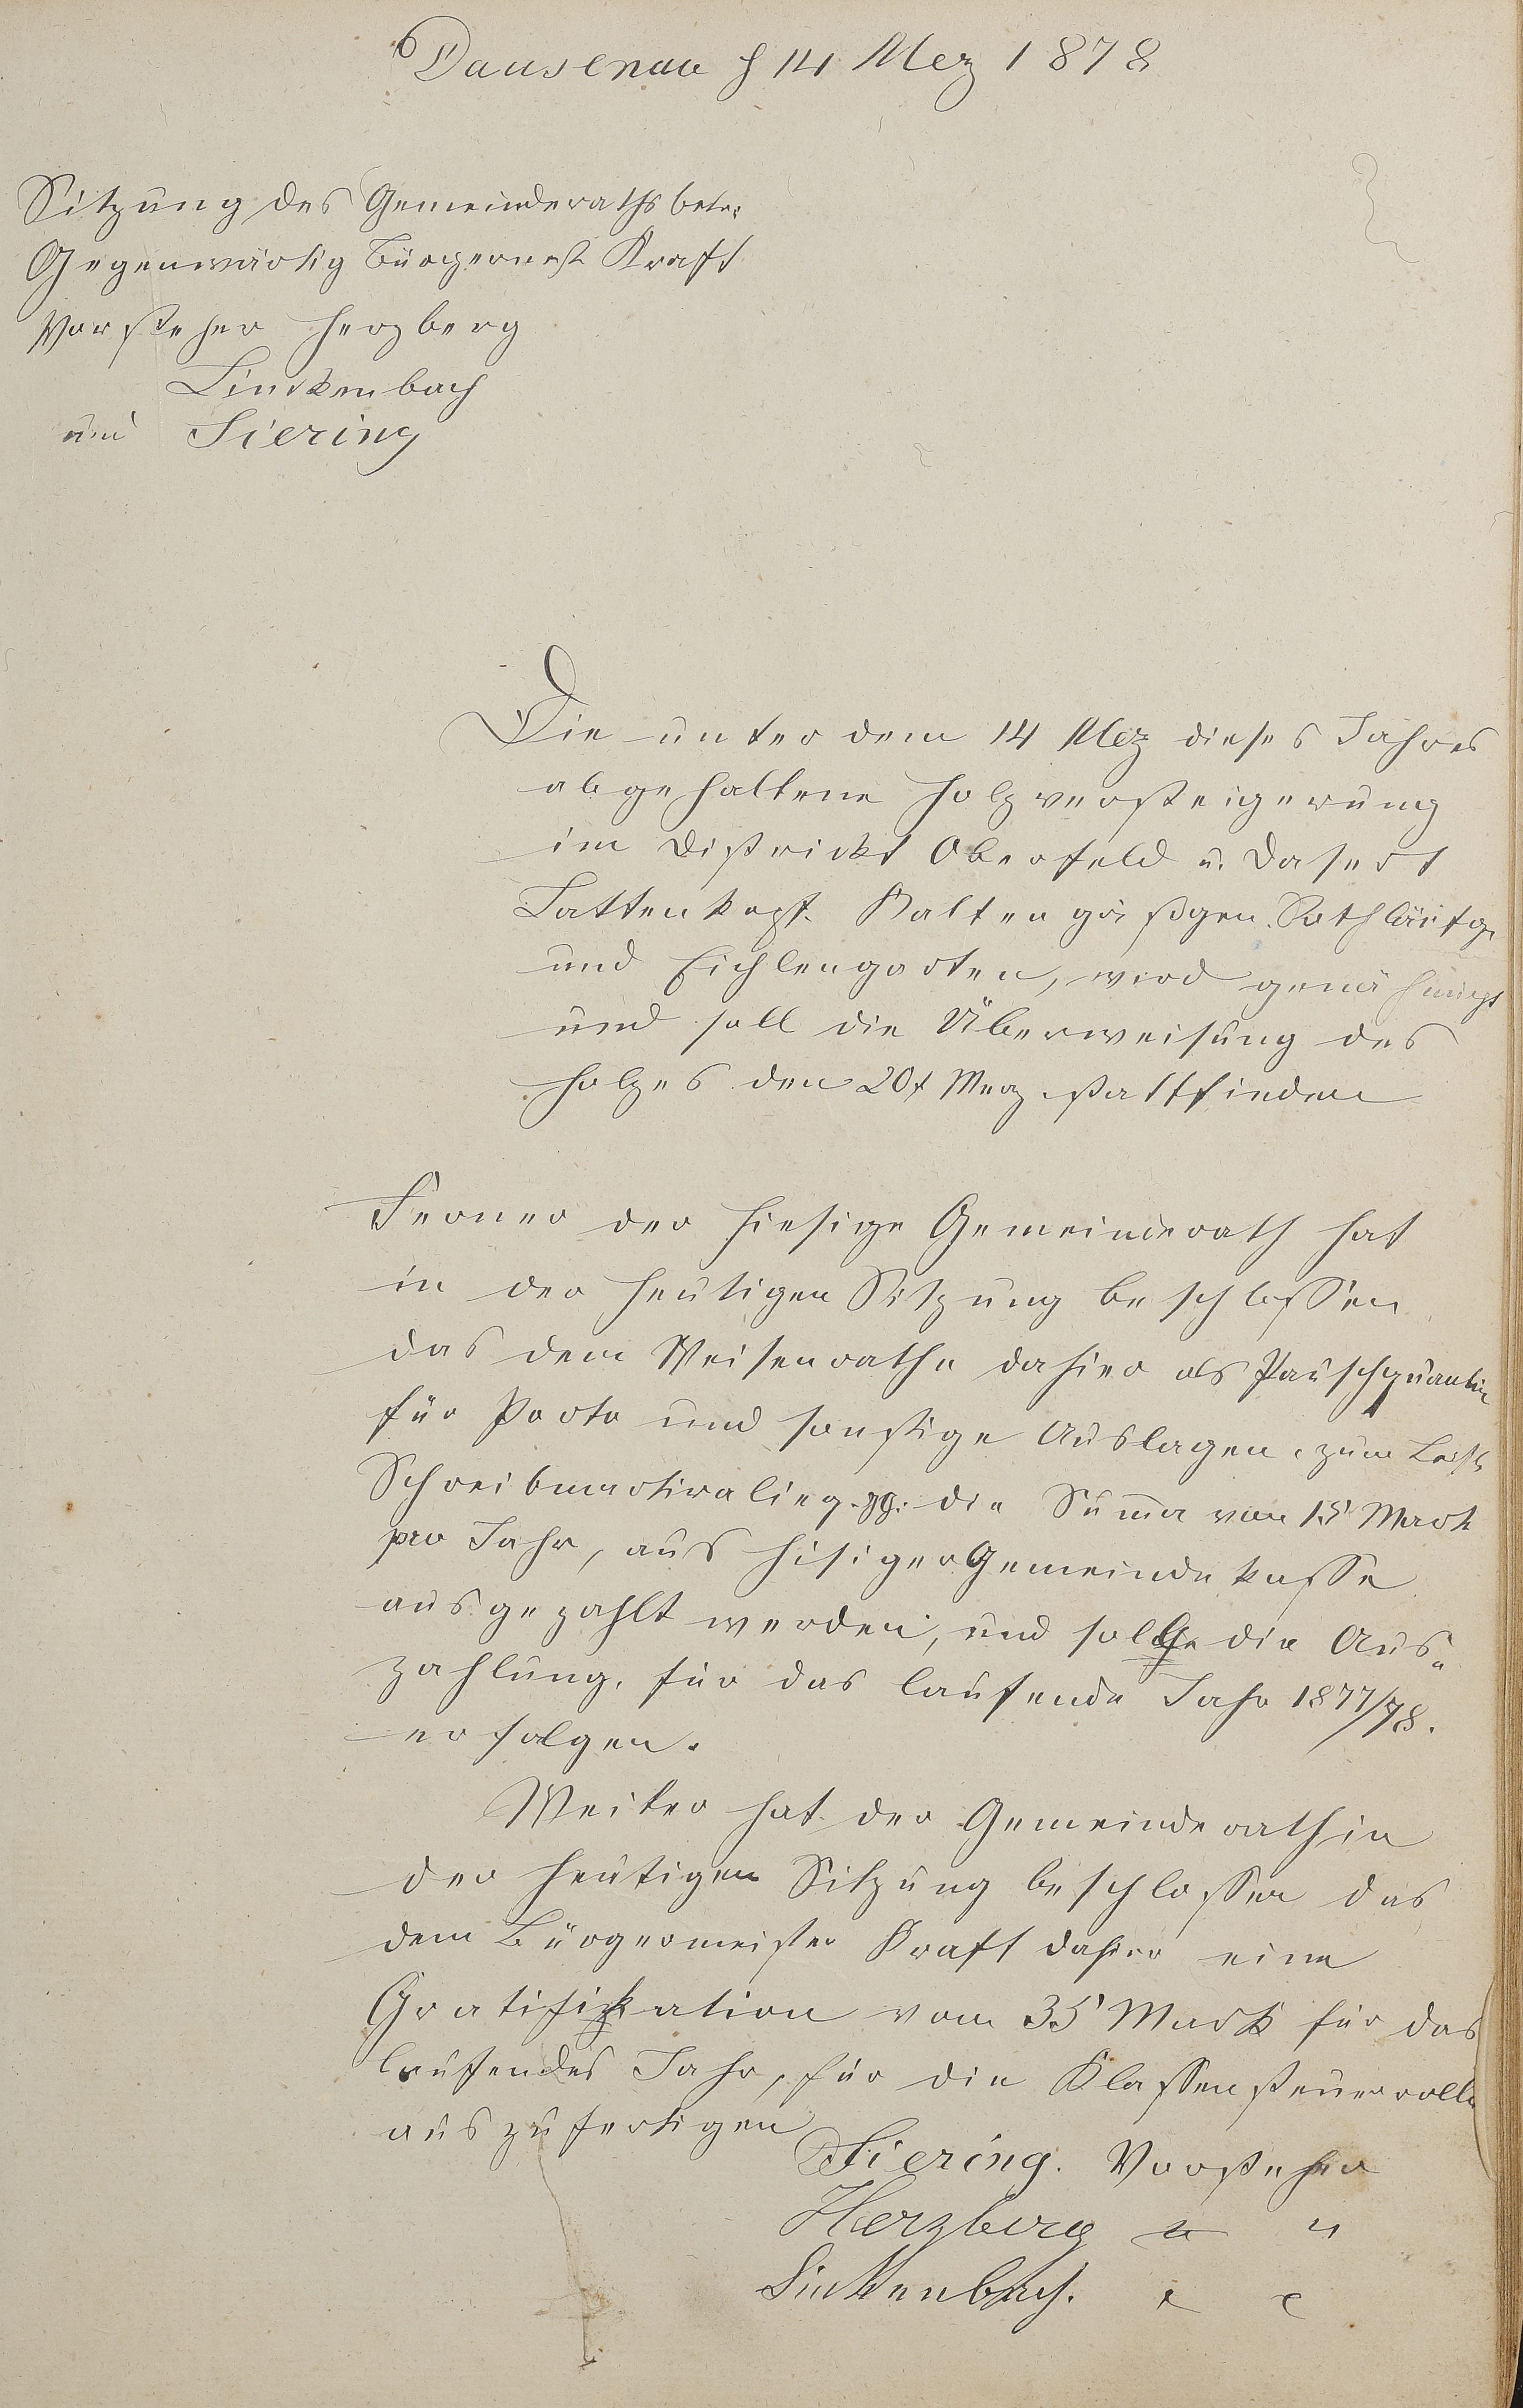 Dausenau d 14 Merz 1878
Sitzung des Gemeinderaths betr:
Gegenwärtig Bürgermst. Kraft
Vorsteher Herzberg
Linkenbach
und Siering
Die unter dem 14 Merz dieses Jahres
abgehaltene Holzversteigerung
im Districkt Oberfeld u. Dasert
Lattenkopf. Kaltengäßgen.
und Eichlengarten, wird genähmigt
und soll die Überweisung des
Holzes den 20t Merz stattfinden
Ferner der hiesige Gemeinderath hat
in der heutigen Sitzung beschlossen
das dem Weisenrathe dahier als Pauschquantum
für Porto und sonstige Auslagen, zum
die Summa von 15 Mark
pro Jahr, aus hisiger Gemeindekasse
ausgezahlt werden, und solche die Aus-
zahlung, für das laufende Jahr 1877/78.
erfolgen.
Weiter hat der Gemeinderath in
der heutigen Sitzung beschlossen das
dem Bürgermeister Kraft dahier eine
Gratifikation vom 35 Mark für das
laufendes Jahr, für die Klassensteuerrolle
auszufertigen
Siering. Vorsteher
Herzberg " "
Linkenbach. " "